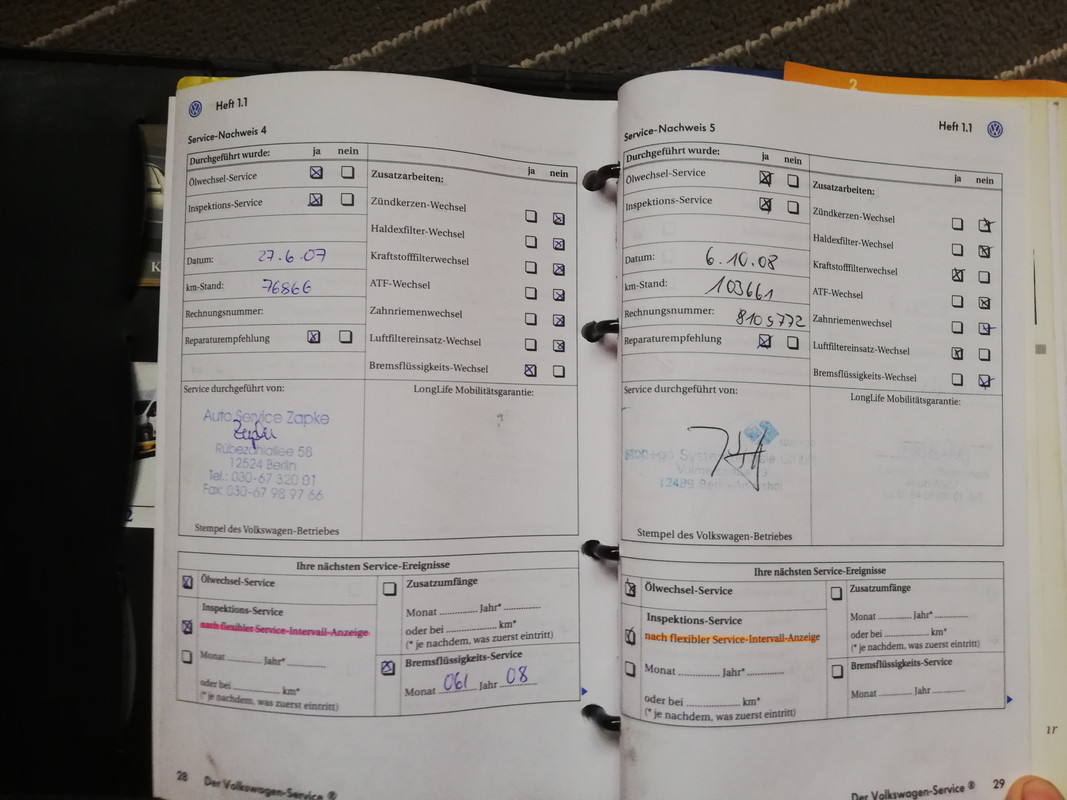 Heft 1.1
Service-Nachweis 4
Durchgeführt wurde: ja nein
Ölwechsel-Service
Inspektions-Service
Datum: 27.6.07
km-Stand: 76866
Rechnungsnummer:
Reparaturempfehlung
ja nein
Zusatzarbeiten:
Zündkerzen-Wechsel
Haldexfilter-Wechsel
Kraftstofffilterwechsel
ATF-Wechsel
Zahnriemenwechsel
Luftfiltereinsatz-Wechsel
Bremsflüssigkeits-Wechsel
Service durchgeführt von:
Auto Service Zapke
Rübezahlallee 58
12524 Berlin
Tel.: 030-67 320 01
Fax: 030-67 98 97 66
Stempel des Volkswagen-Betriebes
LongLife Mobilitätsgarantie:
Ihre nächsten Service-Ereignisse
Ölwechsel-Service
Inspektions-Service
nach flexibler Service-Intervall-Anzeige
Monat ............ Jahr* ............
oder bei ............ km*
(* je nachdem, was zuerst eintritt)
Zusatzumfänge
Monat ............ Jahr* ............
oder bei ............ km*
(* je nachdem, was zuerst eintritt)
Bremsflüssigkeits-Service
Monat 06 Jahr 08
28 Der Volkswagen-Service ®
2
Heft 1.1
Service-Nachweis 5
Durchgeführt wurde: ja nein
Ölwechsel-Service
Inspektions-Service
Datum: 6.10.08
km-Stand: 103661
Rechnungsnummer: 8105772
Reparaturempfehlung
ja nein
Zusatzarbeiten:
Zündkerzen-Wechsel
Haldexfilter-Wechsel
Kraftstofffilterwechsel
ATF-Wechsel
Zahnriemenwechsel
Luftfiltereinsatz-Wechsel
Bremsflüssigkeits-Wechsel
Service durchgeführt von:
12489
Stempel des Volkswagen-Betriebes
LongLife Mobilitätsgarantie:
Ihre nächsten Service-Ereignisse
Ölwechsel-Service
Inspektions-Service
nach flexibler Service-Intervall-Anzeige
Monat ............ Jahr* ............
oder bei ............ km*
(* je nachdem, was zuerst eintritt)
Zusatzumfänge
Monat ............ Jahr* ............
oder bei ............ km*
(* je nachdem, was zuerst eintritt)
Bremsflüssigkeits-Service
Monat ............ Jahr ............
Der Volkswagen-Service ® 29
2